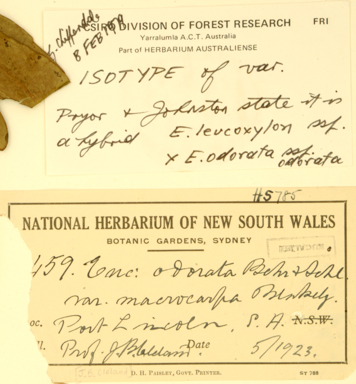 8 FEB
CSIRO DIVISION OF FOREST RESEARCH FRI
Yarralumla A.C.T. Australia
Part of HERBARIUM AUSTRALIENSE
ISOTYPE of var.
Pryor & Johnston state it is
a hybrid E. leucoxylon ssp.
x E. odorata ssp.
odorata
HS 785
NATIONAL HERBARIUM OF NEW SOUTH WALES
BOTANIC GARDENS, SYDNEY
459. Euc: odorata Behr & Schl.
var. macrocarpa Blakely.
oc. Port Lincoln, S.A. N.S.W.
Prof. J. B. Cleland. Date 5/1923.
D. H. PAISLEY, GOVT. PRINTER. 6Y 788